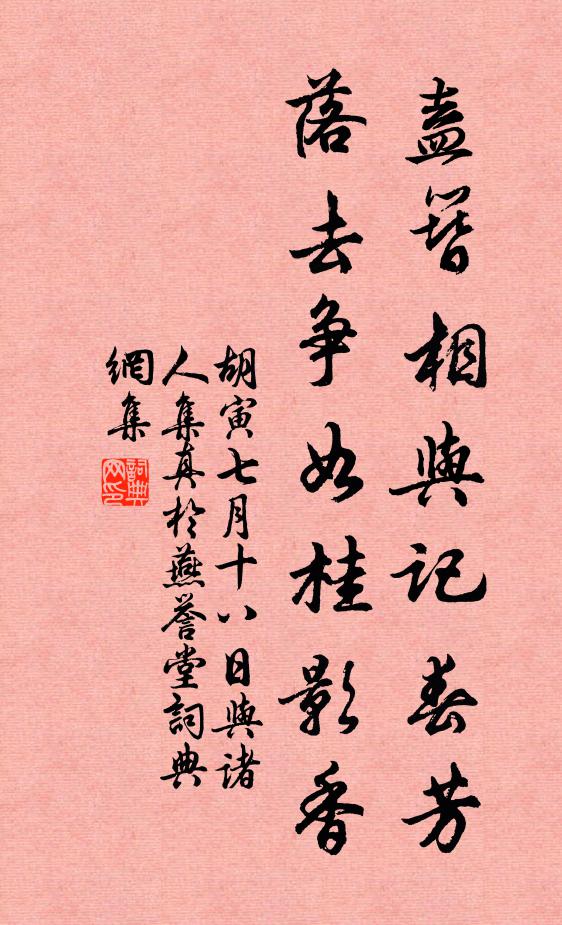 盍簪相與記春芳
落去争如桂影香
胡寅七月十八日與諸
人集真於燕誉堂詞典
網集
詞典
网印